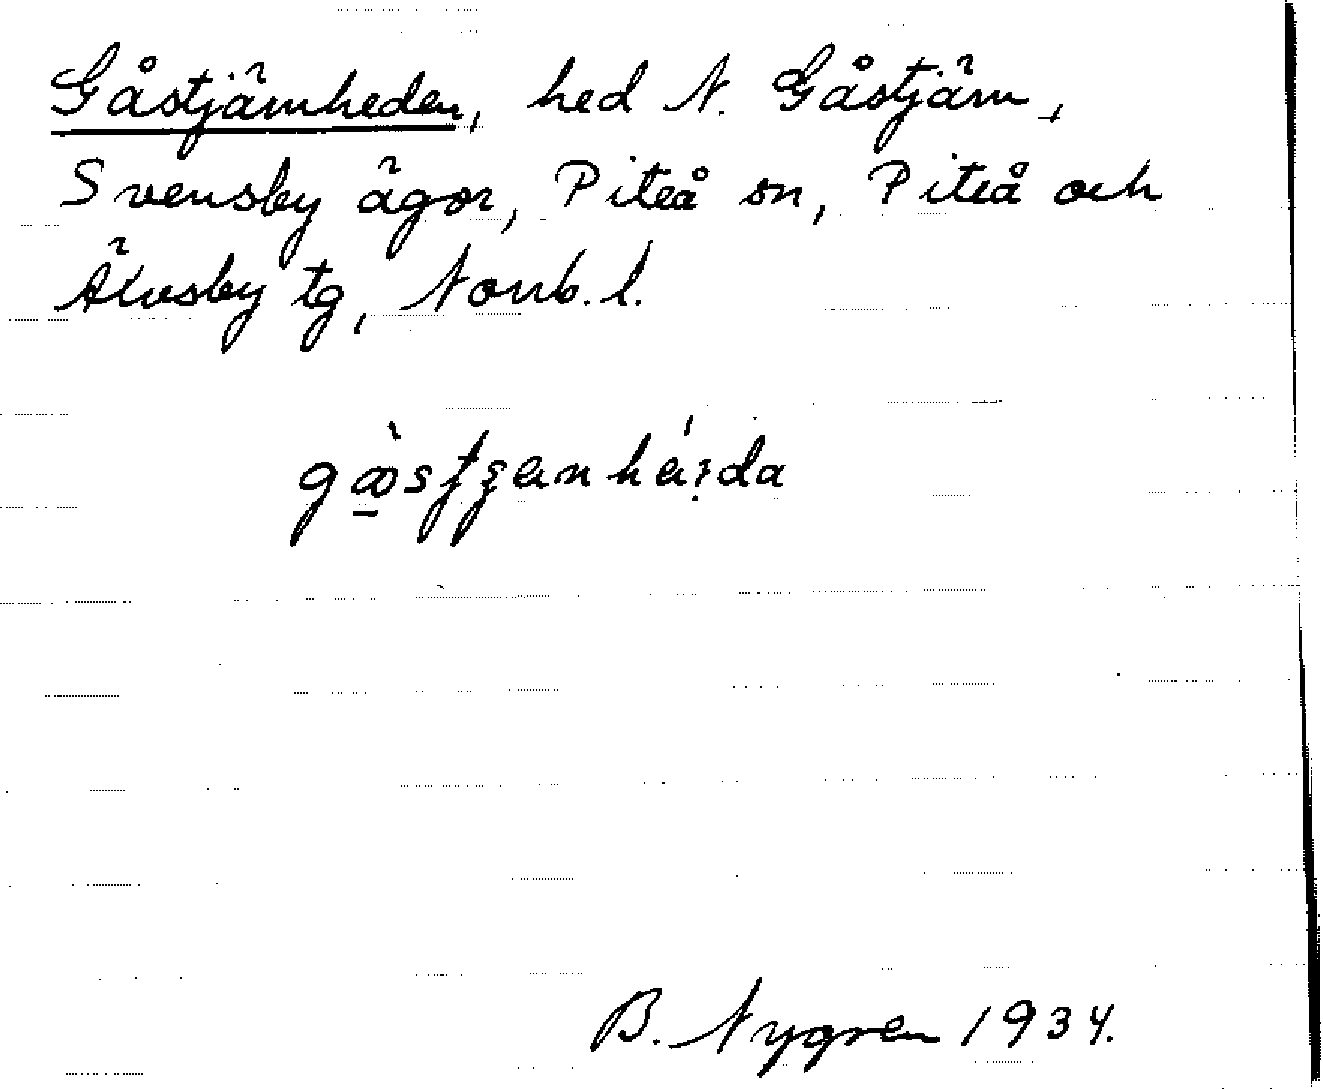 Gåstjärnheden, hed N. Gåstjärn,
Svensby ägor, Piteå sn, Piteå och
Älvsby tg, Norrb. l.
B. Nygren 1934.